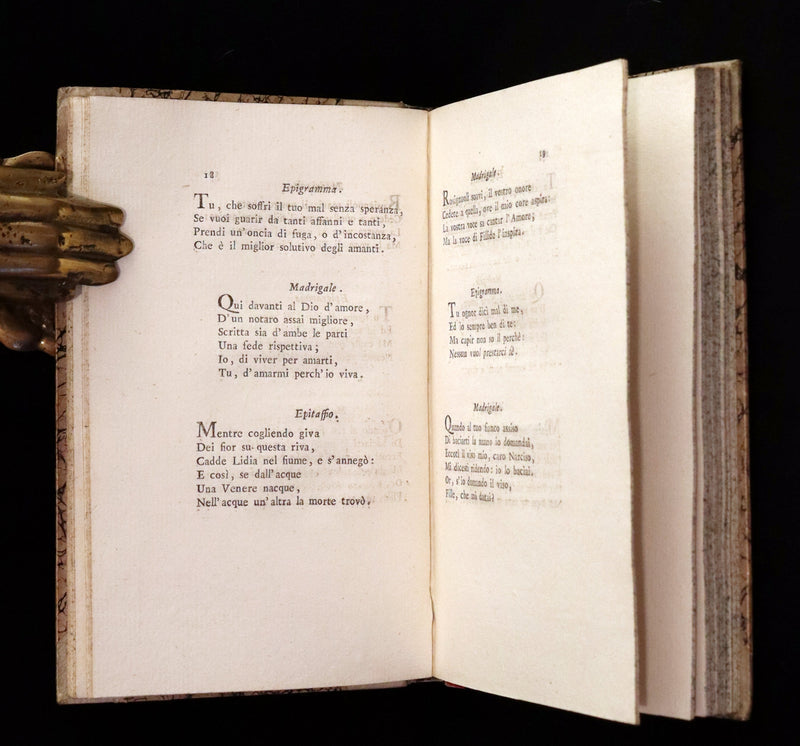 18
Epigramma.
Tu, che soffri il tuo mal senza speranza,
Se vuoi guarir da tanti affanni e tanti,
Prendi un'oncia di fuga, o d'incostanza,
Che è il miglior solutivo degli amanti.
Madrigale.
Qui davanti al Dio d'amore,
D'un notaro assai migliore,
Scritta sia d'ambe le parti
Una fede rispettiva;
Io, di viver per amarti,
Tu, d'amarmi perch'io viva.
Epitaffio.
Mentre cogliendo giva
Dei fior su questa riva,
Cadde Lidia nel fiume, e s'annegò:
E così, se dall'acque
Una Venere nacque,
Nell'acque un'altra la morte trovò.
19
Madrigale.
Rosignoli soavi, il vostro onore
Cedete a quella, ove il mio core aspira:
La vostra voce sa cantar l'Amore;
Ma la voce di Fillide l'inspira.
Epigramma.
Tu ognor dici mal di me,
Ed io sempre ben di te:
Ma capir non so il perchè
Nessun vuol prestarci fè.
Madrigale.
Quando al tuo fianco assiso
Di baciarti la mano io domandai,
Eccoti il viso mio, caro Narciso,
Mi dicesti ridendo: io lo baciai.
Or, s'io domando il viso,
Fille, che mi darai?